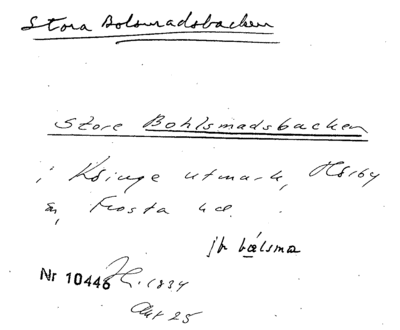 Stora Bolsmadsbacken
Store Bohlsmadsbacken
i Ksinge utmark, Hörby
sn, Frosta hd.
jfr bælsma
Nr 10446 1834
Akt 25